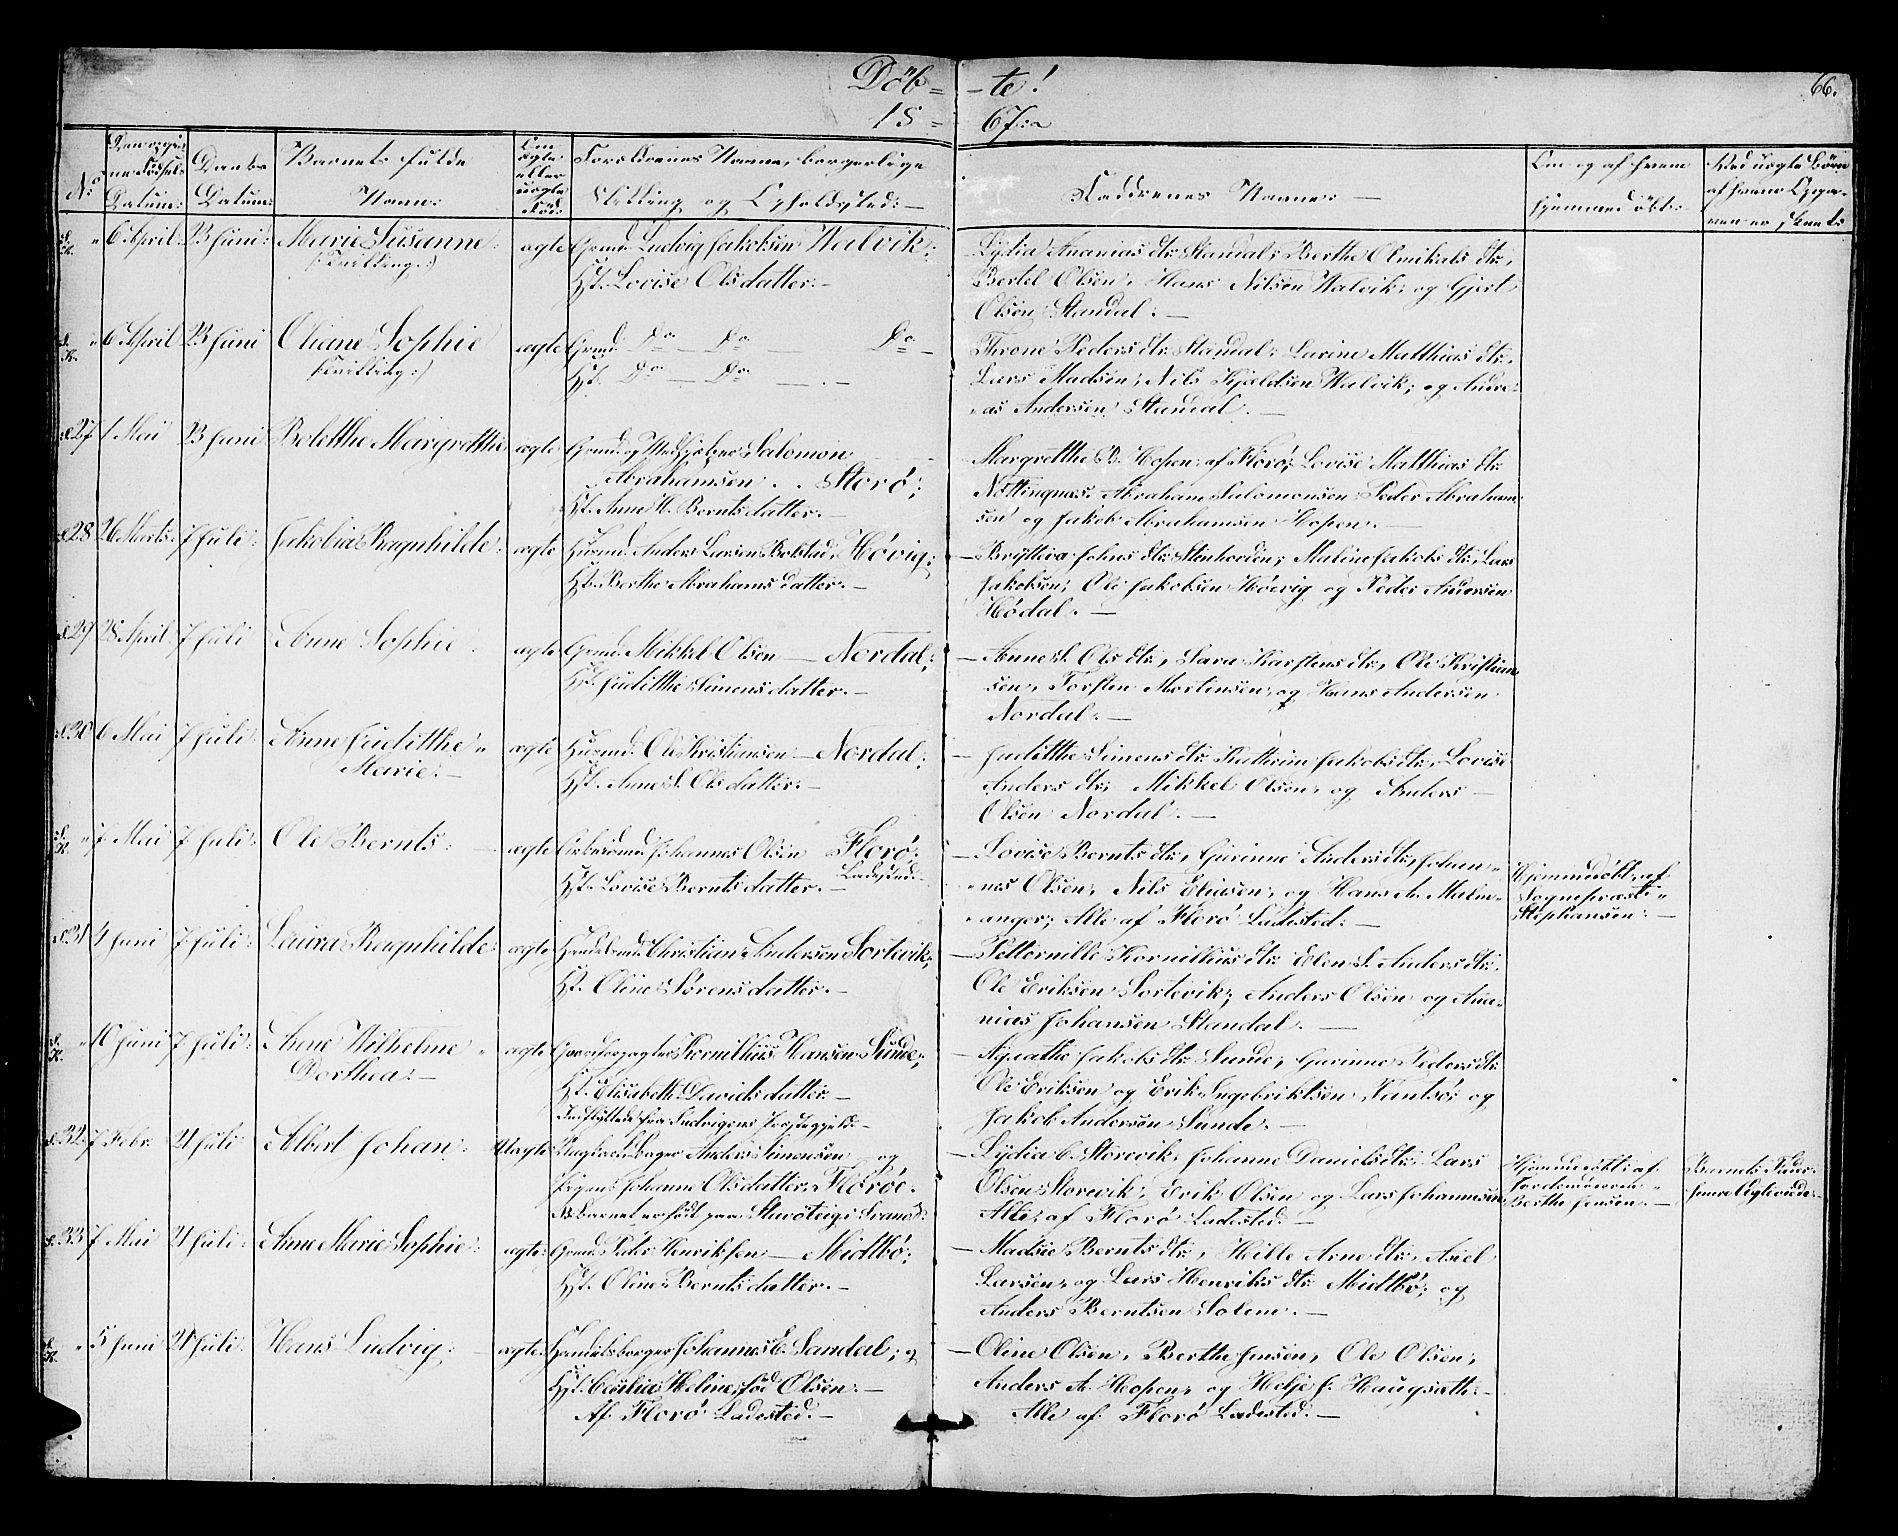 Döb= -te!
66.
18= 67:
No
Datum:
Daabs Datum:
Barnets fulde Navn:
ægte eller uægte
Forældrenes Navne, borgerlige Stilling og Opholdsted:
Faddrenes Navne:
Om og af hvem hjemmedöbt:
Ved uægte Börn
6 April. 23 Juni: Marie Susanne: ægte Grmd. Ludvig Jakobsen Walvik;
(: Tvilling:) Hst. Lovise Olsdatter.
Lydia Ananias dtr. Standal; Berthe Olmikals dtr,
Bertel Olsen, Hans Nilsen Walvik, og Gjert
Olsen Standal.
6 April 23 Juni Oliane Sophie ægte Grmd. Do Do Do
Tvilling:) Hst. Do Do
Throne Peders dtr. Standal; Lavine Matthias dtr,
Lars Madsen, Nils Kjeldsen Walvik; og Andre-
as Andersen Standal.
27 1 Mai 23 Juni Bolette Margrethe ægte Grmd. og Salomon
Abrahamsen Storö;
Hst. Anne H. Berntsdatter.
Margrethe B. Hopen af Florö; Lovise Matthias dtr
Nöttingnæs; Abraham Salomonsen Peder Abraham-
sen og Jakob Abrahamsen Hopen.
28 26 Marts. 7 Juli: Jakobia Ragnhilde: ægte Husmd. Anders Larsen Bolstad, Hövig;
Hst. Berthe Abrahamsdatter.
Brythea Johns dtr. Malene Jakobs dtr, Lars
Jakobsen, Ole Jakobsen Hövig og Peder Andersen
Hödal.
29 28 April 7 Juli Anne Sophie ægte Grmd. Mikkel Olsen Nordal;
Hst. Judithe Simensdatter.
Anne S. Ols dtr, Sara Karstens dtr, Ole Kristian-
sen, Torsten Mortensen, og Hans Andersen
Nordal.
30 6 Mai 7 Juli. Anne Judithe ægte Husmd. Ole Kristiansen Nordal;
Marie: Hst. Anne S. Olsdatter.
Judithe Simens dtr Kathrine Jakobs dtr, Lovise
Anders dtr; Mikkel Olsen, og Anders
Olsen Nordal.
7 Mai 7 Juli: Ole Bernts: ægte Arbeidsmd. Johannes Olsen Florö
Hst. Lovise Berntsdatter. Ladested.
Lovise Bernts dtr, Gurinne Anders dtr, Johan-
nes Olsen, Nils Eliasen, og Hans A. Malm-
anger; Alle af Florö Ladested:
Hjemmedöbt af Sognepræst Stephansen:
31 4 Juni 7 Juli: Laura Ragnhilde: ægte Handelsmd. Christian Andersen Sortevik;
Hst. Oline Sörensdatter.
Petternille Kornilius dtr. Elen S. Anders dtr,
Ole Eriksen Sortevik; Anders Olsen og Ana-
nias Johansen Standal.
10 Juni 7 Juli: Anne Wilhelmine ægte Kornilius Hansen Sunde;
Dorthea: Hst. Elisabeth Davidsdatter.
Indflyttede fra Ludvigens Præstegjeld.
Agathe Jakobs dtr. Sunde, Gurinne Peders dtr
Ole Eriksen og Erik Ingebriktsen Tantsö; og
Jakob Andersen Sunde.
32 7 Febr. 21 Juli Albert Johan: Uægte Anders Simensen og
Pigen Johanne Olsdatter, Floröe.
Barnet er födt paa
Lydia C. Storevik, Johanne Daniels dtr, Lars
Olsen Storevik, Erik Olsen og Lars Johannesen
Alle af Florö Ladested:
Hjemmedöbt af Jordemoderen Berthe Jensen.
Barnets Fader
33 7 Mai 21 Juli: Anne Marie Sophie: ægte: Grmd. Peder Henriksen Midtbö;
Hst. Oline Berntsdatter.
Madsie Bernts dtr, Hille Arne dtr, Axel
Larsen, og Lars Henriks dtr Midtbö; og
Anders Berntsen Solem.
5 Juni 21 Juli: Hans Ludvig: ægte: Handelsborger Johannes E. Sandal; og
Hst. Cecilia Heline, föd Olsen.
Af: Florö Ladested.
Oline Olsen, Berthe Jensen, Ole Olsen,
Anders A. Hopen, og Helje J. Haugsæth.
Alle af: Florö Ladested.